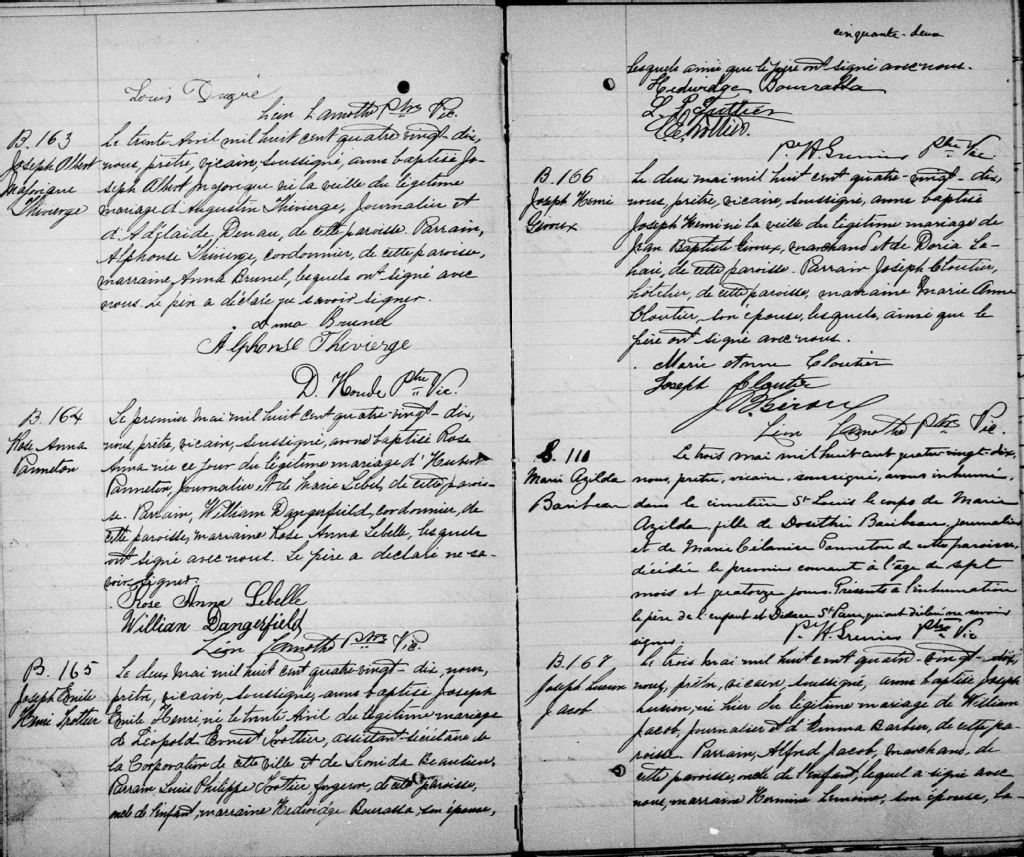 Louis Dugré
Léon Lamothe Ptre Vic.
B. 163
Joseph Albert
Majorique
Thivierge
Le trente Avril mil huit cent quatre vingt-dix,
nous, prêtre, vicaire, soussigné, avons baptisé Jo-
seph Albert Majorique né la veille du légitime
mariage d'Augustin Thivierge, Journalier et
d'Adélaide Denau, de cette paroisse. Parrain,
Alphonse Thivierge, cordonnier, de cette paroisse,
marraine, Anna Brunel, lesquels ont signé avec
nous. Le père a déclaré ne savoir signer.
Anna Brunel
Alphonse Thivierge
D. Houde Ptre Vic.
B. 164
Rose Anna
Panneton
Le premier mai mil huit cent quatre vingt-dix,
nous, prêtre, vicaire, soussigné, avons baptisé Rose
Anna née ce jour du légitime mariage d'Hubert
Panneton, journalier, et de Marie Lebel, de cette parois-
se. Parrain, William Dangerfield, cordonnier, de
cette paroisse, marraine Rose Anna Lebelle, lesquels
ont signé avec nous. Le père a déclaré ne sa-
voir signer.
Rose Anna Lebelle
Willian Dangerfield
Léon Lamothe Ptre Vic.
B. 165
Joseph Emile
Henri Trottier
Le deux mai mil huit cent quatre vingt-dix, nous,
prêtre, vicaire, soussigné, avons baptisé Joseph
Emile Henri, né le trente Avril du légitime mariage
de Léopold Ernest Trottier, assistant-secrétaire de
la Corporation de cette ville et de Léonida Beaulieu.
Parrain Louis Philippe Trottier, forgeron, de cette paroisse,
oncle de l'enfant, marraine Hedwidge Bourassa, son épouse,
cinquante-deux
lesquels ainsi que le père ont signé avec nous.
Hedwidge Bourassa
L. P. Trottier
P. H. Ptre Vic
B. 166
Joseph Henri
Giroux
Le deux mai mil huit cent quatre-vingt-dix
nous, prêtre, vicaire, soussigné, avons baptisé
Joseph Henri né la veille du légitime mariage de
Jean Baptiste Giroux, marchand et de Doria La-
haie, de cette paroisse. Parrain Joseph Cloutier,
hôtelier, de cette paroisse, marraine Marie Anne
Cloutier, son épouse, lesquels, ainsi que le
père ont signé avec nous.
Marie Anne Cloutier
Joseph Cloutier
Léon Lamothe Ptre Vic.
S. 110
Marie Azilda
Baribeau
Le trois mai mil huit cent quatre-vingt-dix,
nous, prêtre, vicaire, soussigné, avons inhumé,
dans le cimetière St Louis le corps de Marie
Azilda fille de Dosithé Baribeau, journalier
et de Marie Célanise Panneton de cette paroisse,
décédée le premier courant à l'âge de sept
mois et quatorze jours. Présents à l'inhumation
le père de l'enfant et St qui ont déclaré ne savoir
signer.
P. H. Ptre Vic
B. 167
Joseph Lucien
Jacob
Le trois mai mil huit cent quatre-vingt-dix,
nous, prêtre, vicaire soussigné, avons baptisé Joseph
Lucien, né hier du légitime mariage de William
Jacob, journalier et d'Emma Barbier, de cette pa-
roisse. Parrain, Alfred Jacob, marchand, de
cette paroisse, oncle de l'enfant, lequel a signé avec
nous, marraine Hermine Lemoine, son épouse, la-